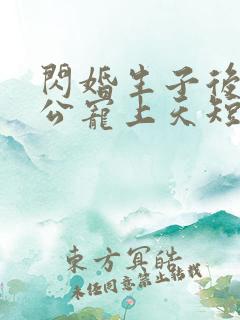 閃婚生子後
公寵上天短
東方冥皓
未任同意禁止轉載